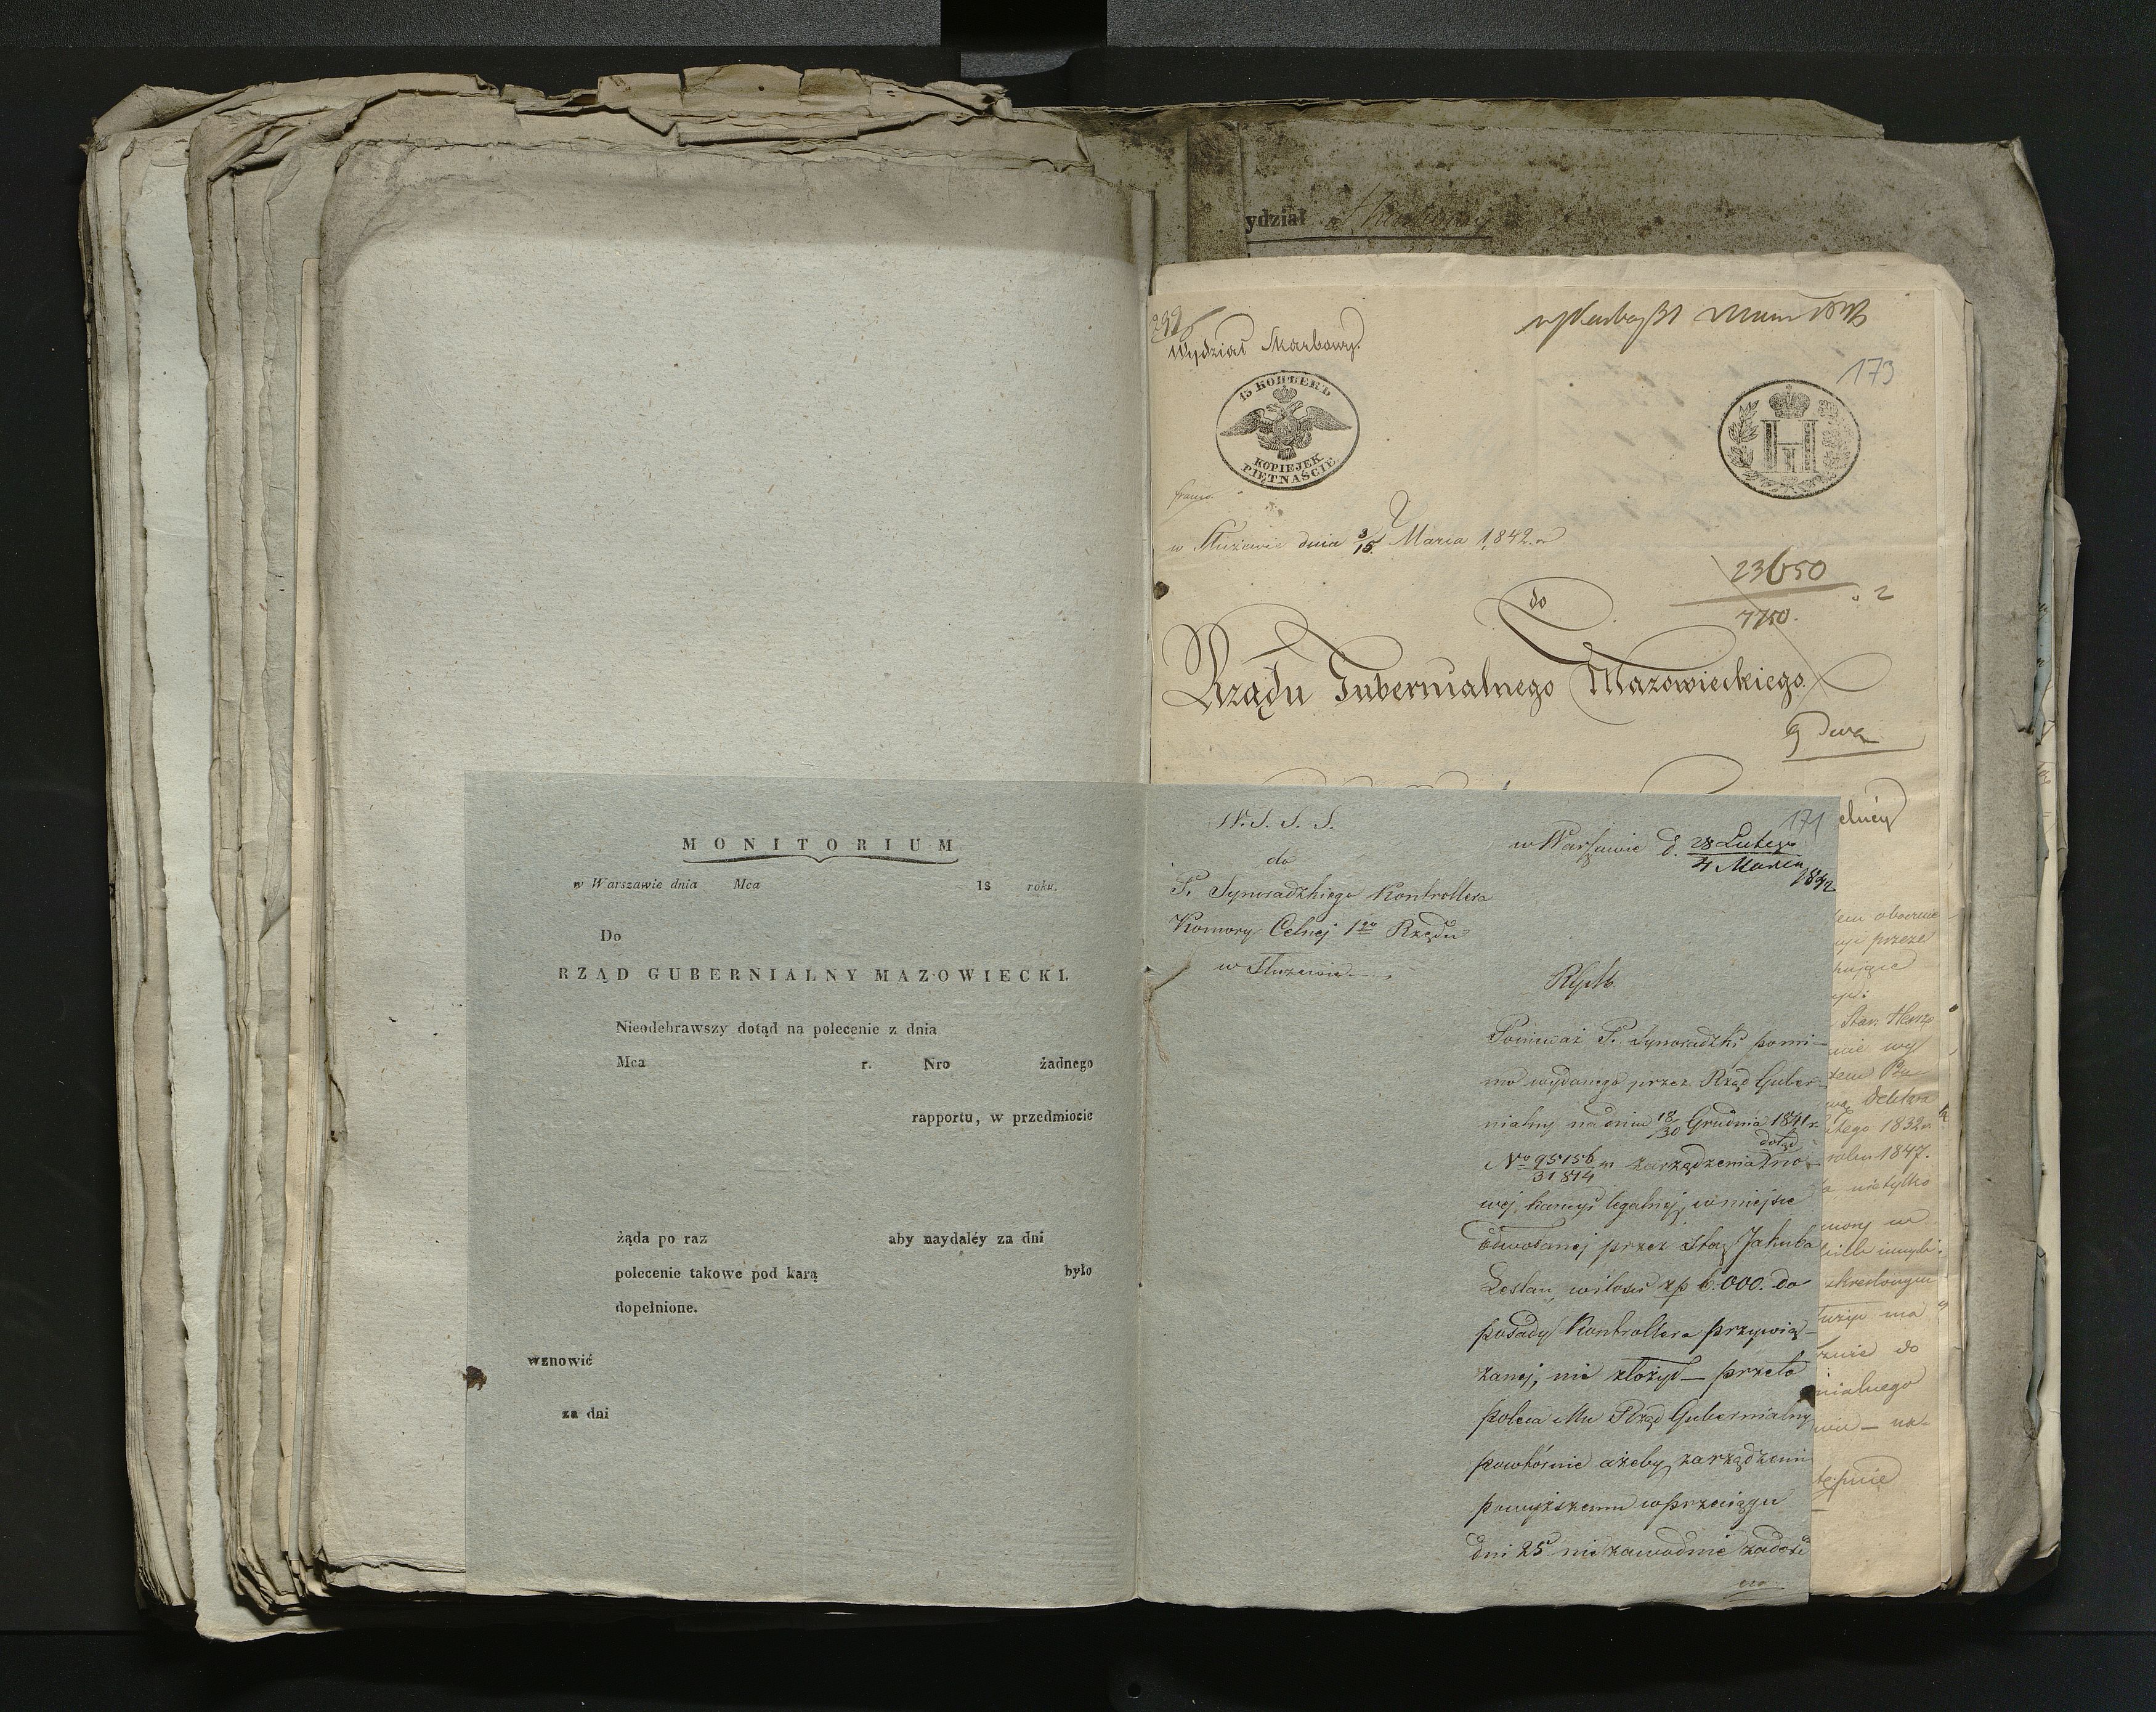 MONITORIUM
w Warszawie dnia Mca 18 roku.
Do
RZĄD GUBERNIALNY MAZOWIECKI.
Nieodebrawszy dotąd na polecenie z dnia
Mca r. Nro żadnego
rapportu, w przedmiocie
żąda po raz aby naydaléy za dni
polecenie takowe pod karą było
dopełnione.
wznowić
za dni
ydział Skarbowy
Wydział Skarbowy.
173
15 КОПѢЕКЪ
KOPIEJEK
PIĘTNAŚCIE
franco
w Służewie dnia 3/15 Marca 1842 r
23650
7750.
do
Rządu Gubernialnego Mazowieckiego.
171
w Warszawie d. 28 Lutego
4 Marca
1842
do
P. Synoradzkiego Kontrollera
Komory Celnej 1go Rzędu
w Służewie
Ponieważ P. Synoradzki pomi-
mo wydanego przez Rząd Guber-
nialny na dniu 18/30 Grudnia 1841 r.
dotąd
No 95156/31814 zarządzenia no-
wej kaucyi legalnej, w miejsce
odwołanej przez Stą Jakuba
Leslau, w ilości zp 6.000. do
posady Kontrollera przywią-
zanej, nie złożył — przeto
poleca Mu Rząd Gubernialny
powtórnie ażeby zarządzeniu
powyższemu w przeciągu
dni 25 niezawodnie zadość
elnéy
przeze
Stan
wy
1832
1847.
nietylko
do
nialnego